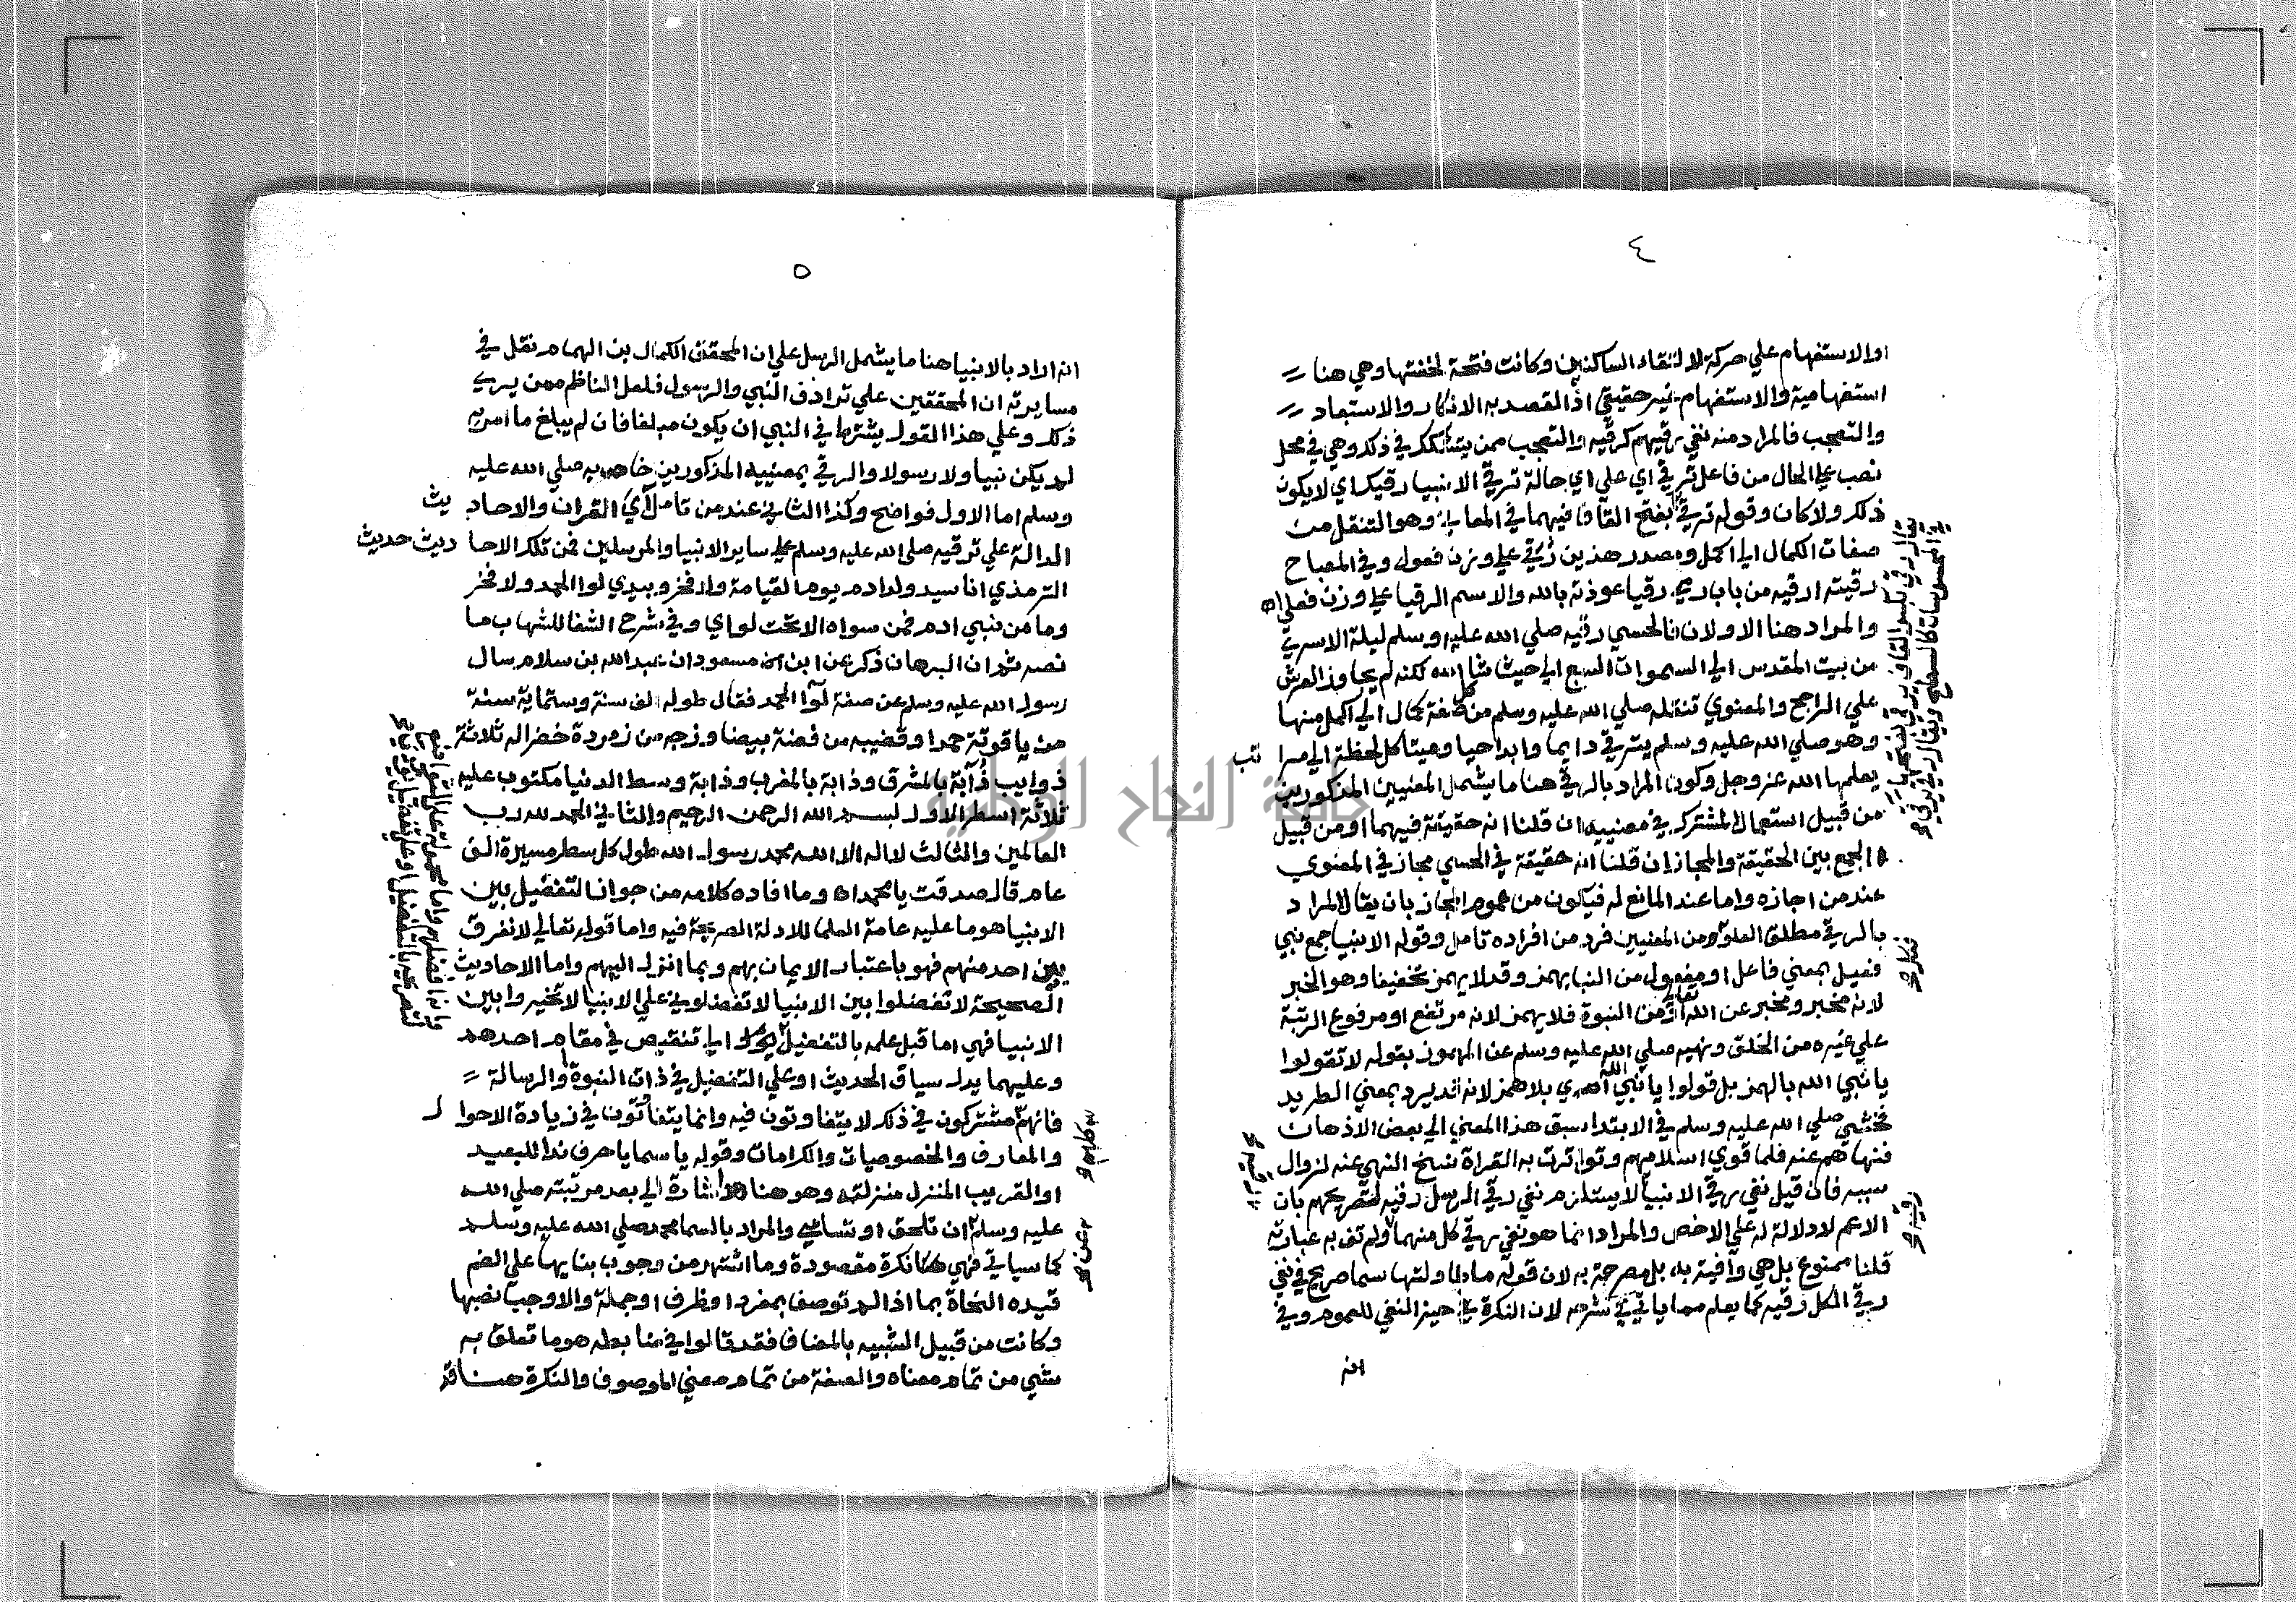 ٤
او الاستفهام علي حركة لالتقاء الساكنين وكانت فتحة لخفتها وهي هنا
استفهامية والاستفهام غير حقيقي اذ القصد به الانكار والاستبعاد
والتعجب فالمراد منه نفي رقيهم كرقيه والتعجب ممن يتشكك في ذلك وهي في محل
نصب علي الحال من فاعل ترقي اي علي اي حالة ترقي الانبيا رقيك اي لا يكون
ذلك ولا كان وقوله ترقي بفتح القاف فيهما في المعاني وهو التنقل من
صفات الكمال الي اكمل ومصدر هذين رُقي علي وزن فعول وفي المصباح
رقيته ارقيه من باب رمي رقيا عوذته بالله والاسم الرقيا علي وزن فعلي اه
والمراد هنا الاولان فالحسي رقيه صلي الله عليه وسلم ليلة الاسري
من بيت المقدس الي السموات السبع الي حيث شا الله لكنه لم يجاوز العرش
علي الراجح والمعنوي تنقله صلي الله عليه وسلم من كل صفة كمال الي اكمل منها
وهو صلي الله عليه وسلم يترقي دايما وابدا حيا وميتا كل لحظة الي مرا تب
يعلمها الله عز وجل وكون المراد بالرقي هنا ما يشمل المعنيين المذكورين
من قبيل استعمال المشترك في معنييه ان قلنا انه حقيقة فيهما او من قبيل
الجمع بين الحقيقة والمجاز ان قلنا انه حقيقة في الحسي مجاز في المعنوي
عند من اجازه واما عند المانع له فيكون من عموم المجاز بان يقال المراد
بالرقي مطلق العلو ومن المعنيين فرد من افراده تامل وقوله الانبيا جمع نبي
فعيل بمعني فاعل او مفعول من النبا يهمز وقد لا يهمز تخفيفا وهو الخبر
لانه مخبر ومخبر عن الله تعالي او من النبوة فلا يهمز لانه مرتفع او مرفوع الرتبة
علي غيره من الخلق ونهيه صلي الله عليه وسلم عن المهموز بقوله لا تقولوا
يا نبي الله بالهمز بل قولوا يا نبي الله اي بلا همز لانه قد يرد بمعني الطريد
فخشي صلي الله عليه وسلم في الابتدا سبق هذا المعني الي بعض الاذهان
فنهاهم عنه فلما قوي اسلامهم وتواترت به القراة نسخ النهي عنه لزوال
سببه فان قيل نفي رقي الانبيا لا يستلزم نفي رقي الرسل رقيه لتصريحهم بان
الاعم لا دلالة له علي الاخص والمراد انما هو نفي رقي كل منهما ولم تف به عبارته
قلنا ممنوع بل هي وافية به بل مصرحة به لان قوله ما طاولتها سما صريح في نفي
رقي الكل رقيه كما يعلم مما ياتي في شرحه لان النكرة في حيز النفي للعموم وفي
انه
٥
انه اراد بالانبيا هنا ما يشمل الرسل علي ان المحقق الكمال بن الهمام نقل في
مسايرته ان المحققين علي ترادف النبي والرسول فلعل الناظم ممن يري
ذلك وعلي هذا القول يشترط في النبي ان يكون مبلغا فان لم يبلغ ما امر به
لم يكن نبيا ولا رسولا والرقي بمعنييه المذكورين خاص به صلي الله عليه
وسلم اما الاول فواضح وكذا الثاني عند من تامل آي القران والاحاد يث
الدالة علي ترقيه صلي الله عليه وسلم علي ساير الانبيا والمرسلين فمن تلك الاحا ديث حديث
الترمذي انا سيد ولد ادم يوم القيامة ولا فخر وبيدي لوا الحمد ولا فخر
وما من نبي ادم فمن سواه الا تحت لواي وفي شرح الشفا للشهاب ما
نصه ثم ان البرهان ذكر عن ابن مسعود ان عبد الله بن سلام سال
رسول الله عليه وسلم عن صفة لوا الحمد فقال طوله الف سنة وستماية سنة
من ياقوتة حمرا وقضيبه من فضة بيضا وزجه من زمردة خضرا له ثلاثة
ذوايب ذابة بالمشرق وذابة بالمغرب وذابة وسط الدنيا مكتوب عليه
ثلاثة اسطر الاول بسم الله الرحمن الرحيم والثاني الحمد لله رب
العالمين والثالث لا اله الا الله محمد رسول الله طول كل سطر مسيرة الف
عام قال صدقت يا محمد اه وما افاده كلامه من جواز التفضيل بين
الانبيا هو ما عليه عامة العلما للادلة الصريحة فيه واما قوله تعالي لا نفرق
بين احد منهم فهو باعتبار الايمان بهم وبما انزل اليهم واما الاحاديث
الصحيحة لا تفضلوا بين الانبيا لا تفضلوني علي الانبيا لا تخيروا بين
الانبيا فهي اما قبل علمه بالتفضيل او الي تنقيص في مقام احدهم
وعليهما يدل سياق الحديث او علي التفضيل في ذات النبوة والرسالة
فانهم مشتركون في ذلك لا يتفاوتون فيه وانما يتفاوتون في زيادة الاحوا ل
والمعارف والخصوصيات والكرامات وقوله يا سما يا حرف ندا للبعيد
او القريب المنزل منزلته وهو هنا اشارة الي بعد مرتبته صلي الله
عليه وسلم ان تلحق او تسامي والمراد بالسما محمد صلي الله عليه وسلم
كما سياتي فهي نكرة مقصودة وما اشتهر من وجوب بنايها علي الضم
قيده النحاة بما اذا لم توصف بمفرد او ظرف او جملة والا وجب نصبها
وكانت من قبيل الشبيه بالمضاف فقد قالوا في ضابطه هو ما تعلق به
شي من تمام معناه والصفة من تمام معني الموصوف والنكرة هنا قد